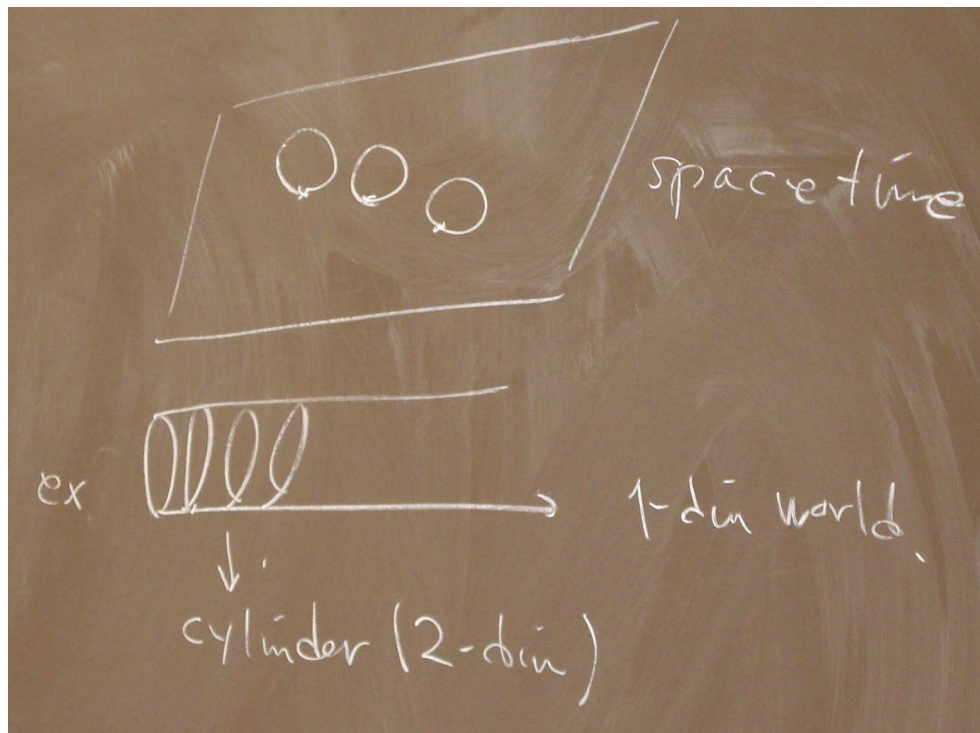 spacetime
ex
1-dim world.
cylinder (2-dim)